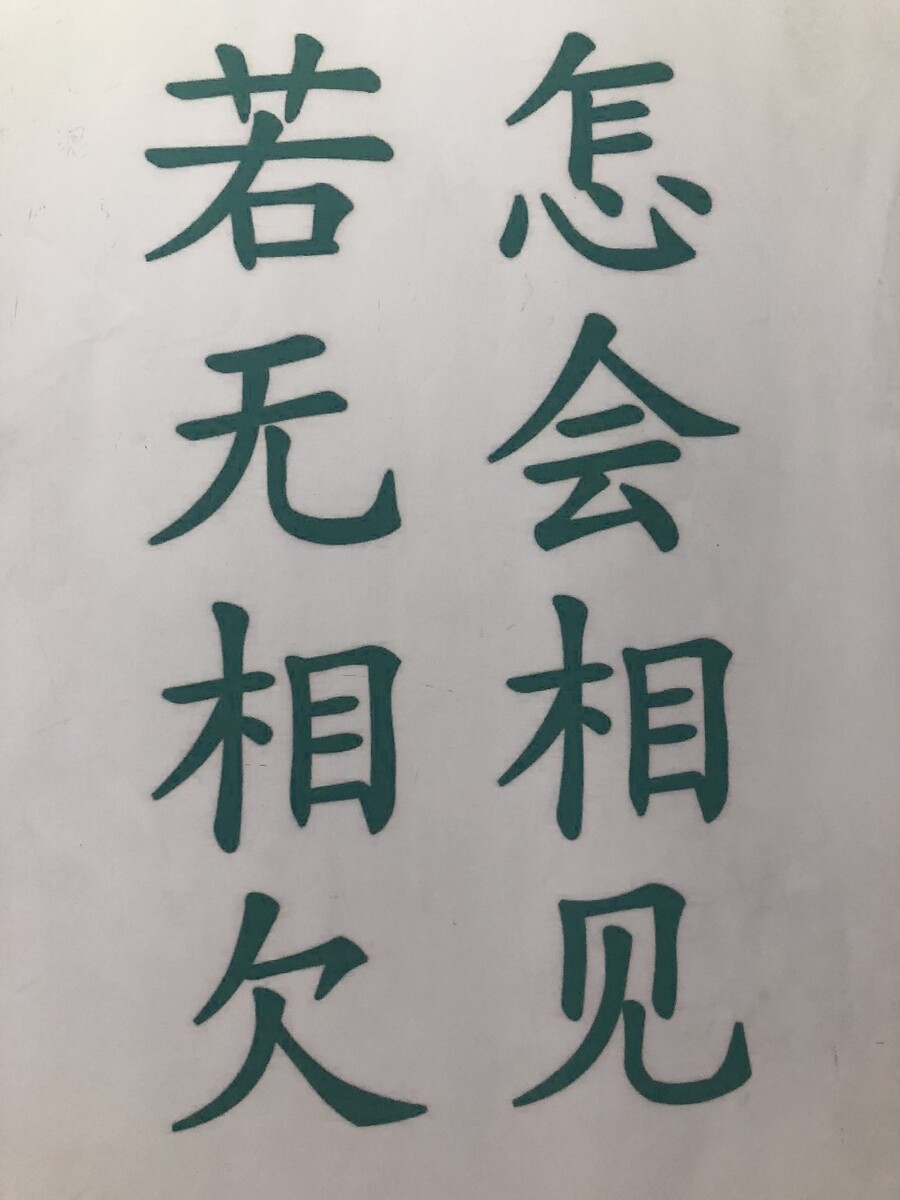 若无相欠
怎会相见